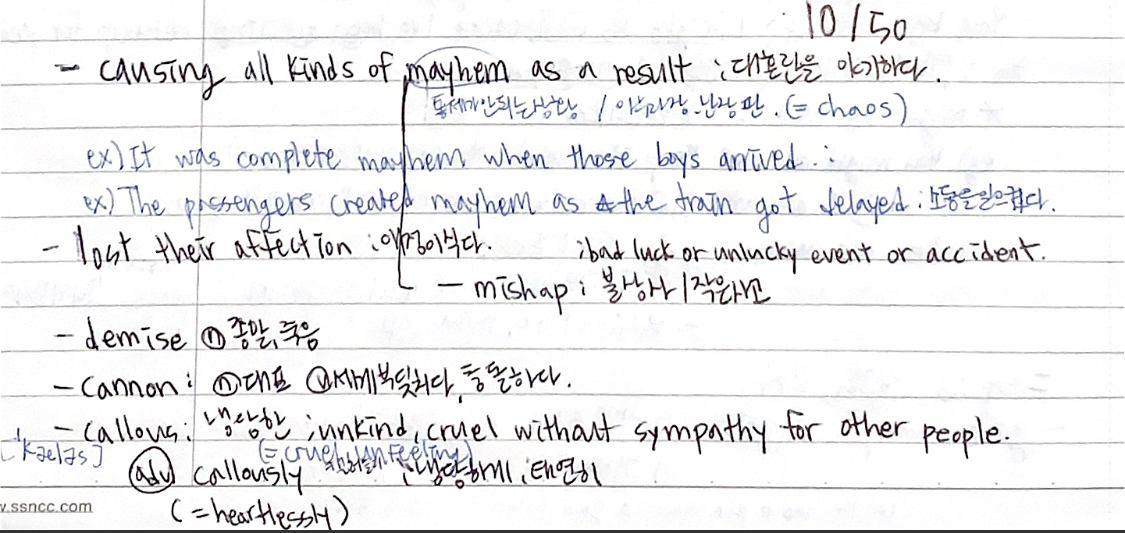 10/50
- causing all kinds of mayhem as a result : 대혼란을 야기하다.
통제가안되는상황 / 아수라장.난장판. (= chaos)
ex) It was complete mayhem when those boys arrived.
ex) The passengers created mayhem as the train got delayed : 소동을일으켰다.
- lost their affection : 애정이식다.
: bad luck or unlucky event or accident.
- mishap : 불상사 / 작은사고
- demise ⓝ 종말, 죽음
- cannon : ⓝ 대포 ⓥ 세게부딪치다, 충돌하다.
- callous : 냉담한 ; unkind, cruel without sympathy for other people.
[kæləs] (= cruel, unfeeling)
(adv) callously : 냉담하게 ; 태연히
(= heartlessly)
v.ssncc.com